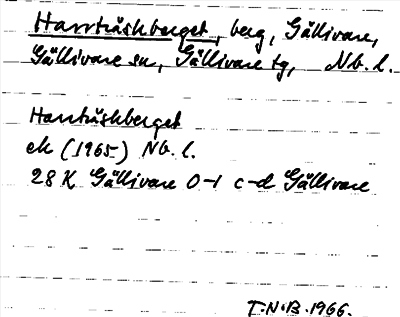 Harrträskberget, berg, Gällivare,
Gällivare sn, Gällivare tg, Nb. l.
Harrträskberget
ek (1965) Nb. l.
28 K Gällivare 0-1 c-d Gällivare
T.N.B. 1966.